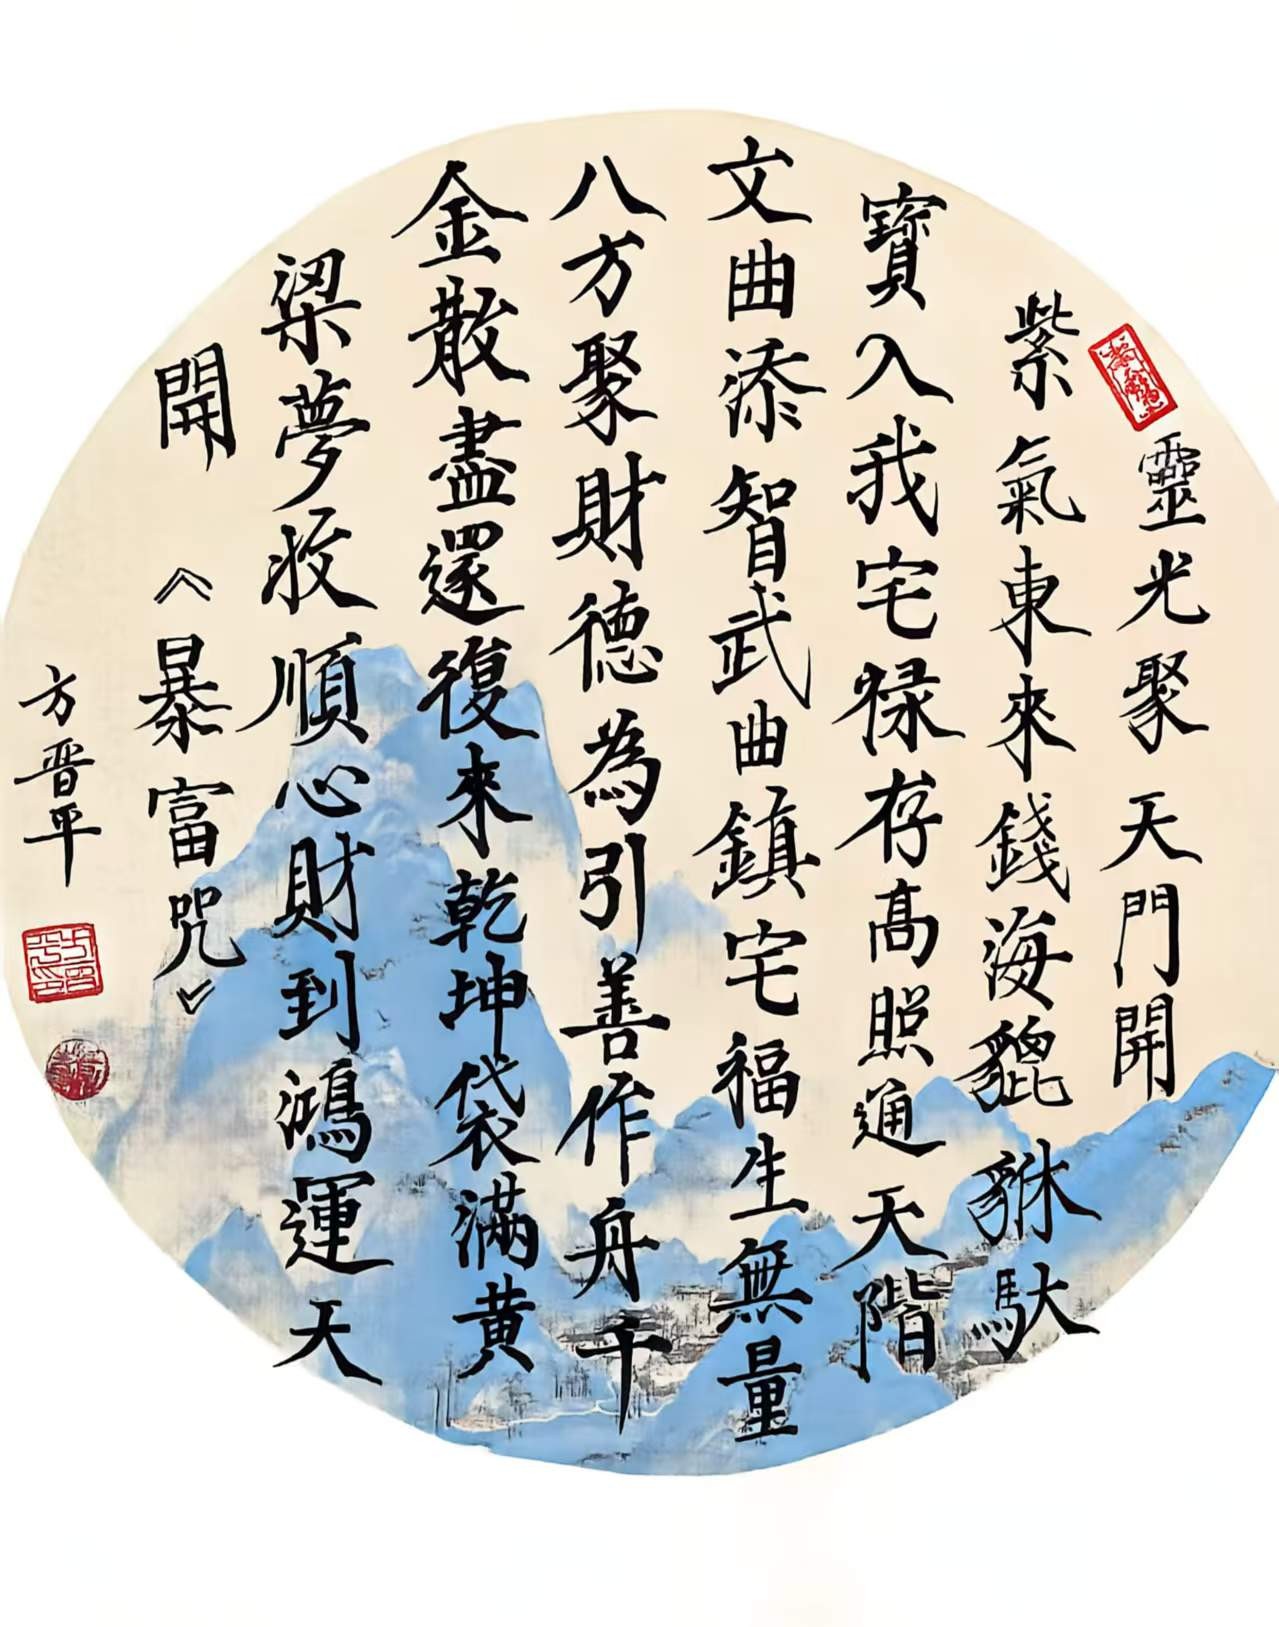 靈光聚天門開
紫氣東來錢海貔貅馱
寶入我宅禄存高照通天階
文曲添智武曲鎮宅福生無量
八方聚財德為引善作舟千
金散盡還復來乾坤袋滿黄
梁夢收順心財到鴻運天
開《暴富咒》
方晋平